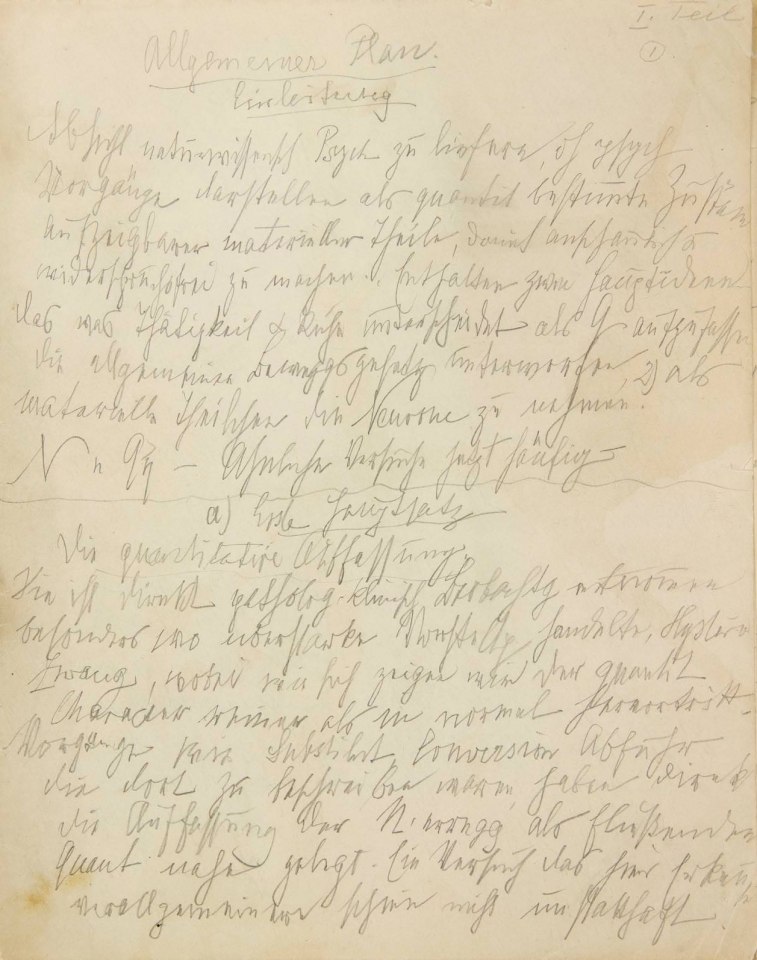 I. Teil
1
Allgemeiner Plan.
Einleitung
Absicht naturwissensch Psych zu liefern, dh psych
Vorgänge darstellen als quantit bestimmte Zustände
aufzeigbarer materieller Theile, damit anschaulich u
widerspruchsfrei zu machen. Enthalten zwei Hauptideen
das was Thätigkeit & Ruhe unterscheidet als Q aufzufassen
die allgemeinen Bewegungsgesetz unterworfen, 2) als
materielle Theilchen die Neurone zu nehmen.
N u Qη — Ähnliche Versuche jetzt häufig —
a) Erster Hauptsatz
Die quantitative Auffassung.
Sie ist direkt patholog-klinisch Beobachtg entnommen
besonders wo überstarke Vorstellg handelte, Hysterie u
Zwang, wobei wie sich zeigen wird der quantit
Character reiner als im normal hervortritt.
Vorgänge wie Substitut, Conversion Abfuhr
die dort zu beschreiben waren haben direkt
die Auffassung der N.erregg als fließender
Quant nahe gelegt. Ein Versuch das hier Erkannte
verallgemeinern schien nicht unstatthaft.